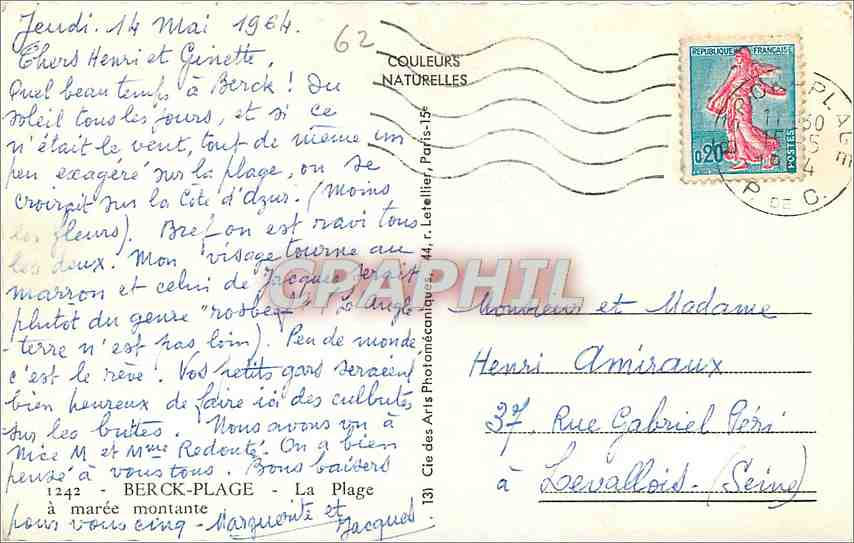 Jeudi. 14 Mai 1964.
Chers Henri et Ginette,
Quel beau temps à Berck ! Du
soleil tous les jours, et si ce
n'était le vent, tout de même un
peu exagéré sur la plage, on se
croirait sur la Côte d'Azur. (Moins
les fleurs). Bref on est ravi tous
les deux. Mon visage tourne au
marron et celui de Jacques serait
plutôt du genre "rosbeef" (L'Angle-
-terre n'est pas loin). Peu de monde
c'est le rêve. Vos petits gars seraient
bien heureux de faire ici des culbutes
sur les buttes. Nous avons vu à
Nice M et Mme Redouté. On a bien
pensé à vous tous. Bons baisers
pour vous cinq - Marguerite et
Jacques.
1242 - BERCK-PLAGE - La Plage
à marée montante
62
COULEURS
NATURELLES
131 Cie des Arts Photomécaniques, 44, r. Letellier, Paris-15e
REPUBLIQUE FRANÇAISE
0,20
POSTES
PLAGE
P. DE C.
CPAPHIL
Monsieur et Madame
Henri Amiraux
37, Rue Gabriel Péri
à Levallois - (Seine)